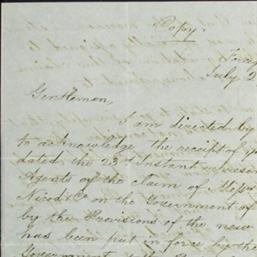 Copy.
Foreig
July 2
Gentlemen,
I am directed by
to acknowledge the receipt of yo
dated the 23rd Instant
Agents of the Claim of Messrs
Nicod & Co on the Government of
by the Provisions of the new
has been put in force by the
Government